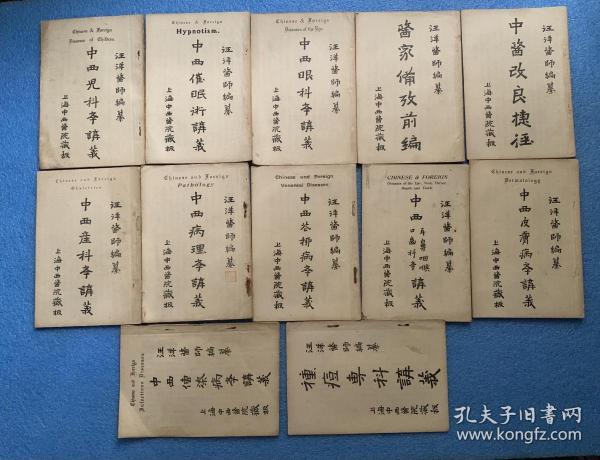 Chinese & Foreign
Diseases of Children.
汪洋醫師編纂
中西兒科學講義
上海中西醫院藏板
Chinese & Foreign
Hypnotism.
汪洋醫師編纂
中西催眠術講義
上海中西醫院藏板
Chinese & Foreign
Diseases of the Eye.
汪洋醫師編纂
中西眼科學講義
上海中西醫院藏板
汪洋醫師編纂
醫家備攷前編
上海中西醫院藏板
汪洋醫師編纂
中醫改良捷徑
上海中西醫院藏板
Chinese and Foreign
Obstetrics
汪洋醫師編纂
中西產科學講義
上海中西醫院藏板
Chinese and Foreign
Pathology
汪洋醫師編纂
中西病理學講義
上海中西醫院藏板
Chinese and Foreign
Venereal Diseases.
汪洋醫師編纂
中西花柳病學講義
上海中西醫院藏板
CHINESE & FOREIGN
Diseases of the Ear, Nose, Throat,
Mouth and Teeth
汪洋醫師編纂
中西耳鼻咽喉口齒科學講義
上海中西醫院藏板
Chinese and Foreign
Dermatology
汪洋醫師編纂
中西皮膚病學講義
上海中西醫院藏板
Chinese and Foreign
Infectious Diseases
汪洋醫師編纂
中西傳染病學講義
上海中西醫院藏板
汪洋醫師編纂
種痘專科講義
上海中西醫院藏板
孔夫子旧书网
www.kongfz.com